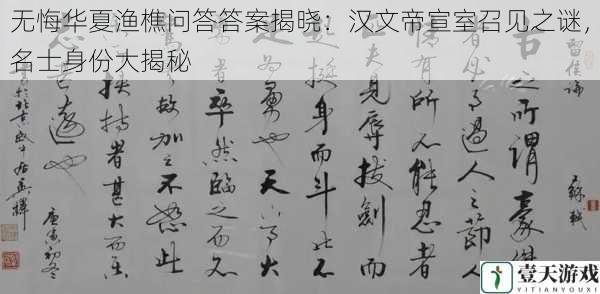 无悔华夏渔樵问答答案揭晓：汉文帝宣室召见之谜，
名士身份大揭秘
留侯论
苏轼
古之所谓豪杰
者必有过人之节人
情有所不能忍者
夫见辱拔剑而
挺身而斗此不
为勇也天
者卒然临之而不
故加之不怒此
挟持者甚大而其
志甚远也
庚寅初冬
壹天游戏
YITIANYOUXI